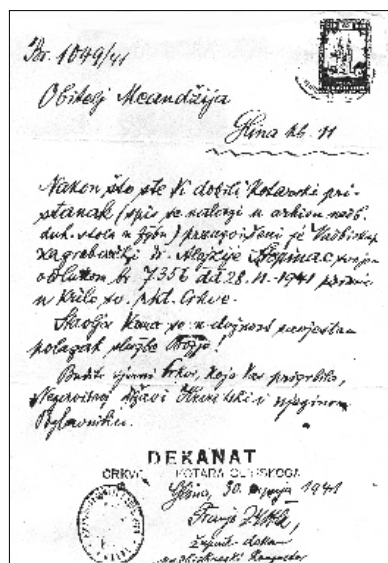 Br. 1049/41
Obitelj Mcandžija
Glina kb. 11
Nakon što ste Vi dobili Kotarski pri-
stanak (spis se nalazi u arkivu nadb.
duh. stola u Zgbu)
zagrebački dr. Alojzije Stepinac svojom
odlukom br. 7356 od 28. II - 1941
u krilo sv. rkt. Crkve.
Stavlja Vam se u dužnost savjestan
polazak službe Božje!
Budite vjerni Crkvi, koja Vas prigrlila,
Nezavisnoj Državi Hrvatskoj i njezinom
Poglavniku.
DEKANAT
CRKVENOG KOTARA GLINSKOGA
Glina, 30. 1941
Franjo
župnik-dekan